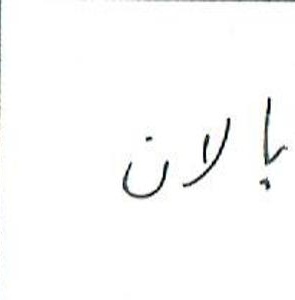 بالان